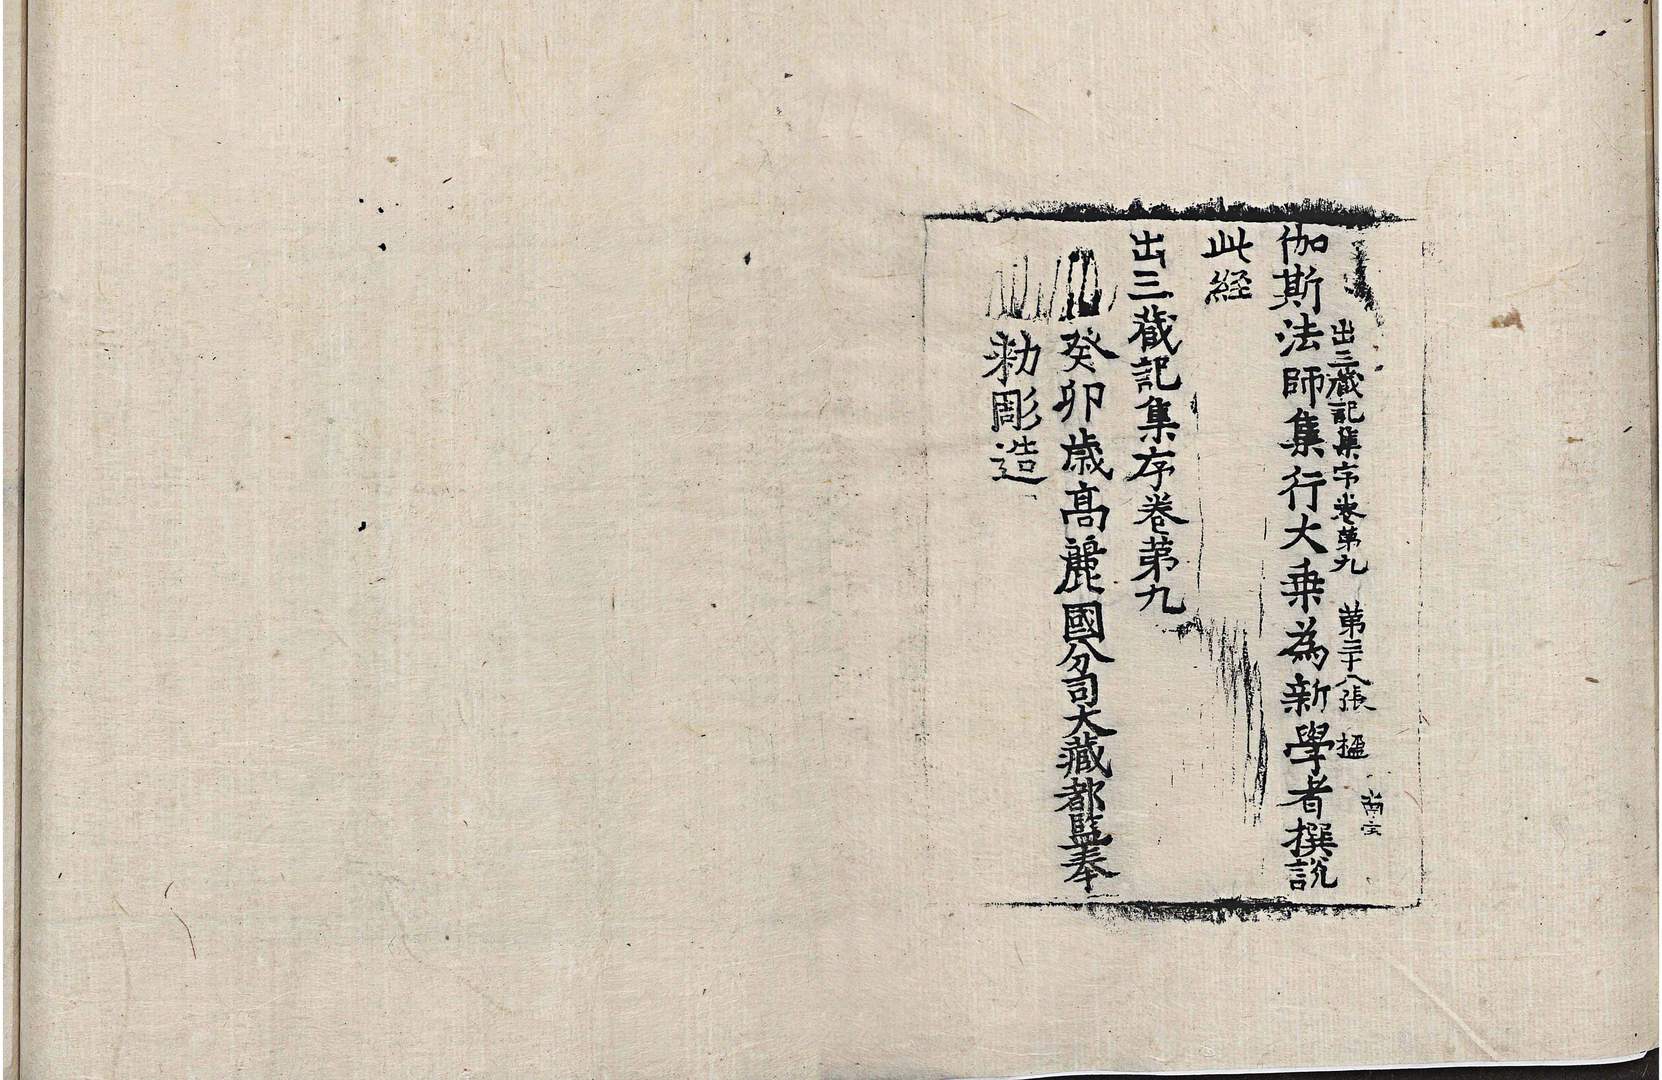 出三藏記集序卷第九 第三十八張 楹
伽斯法師集行大乗為新學者撰說
此経
出三藏記集序卷第九
癸卯歲高麗國分司大藏都監奉
勑彫造